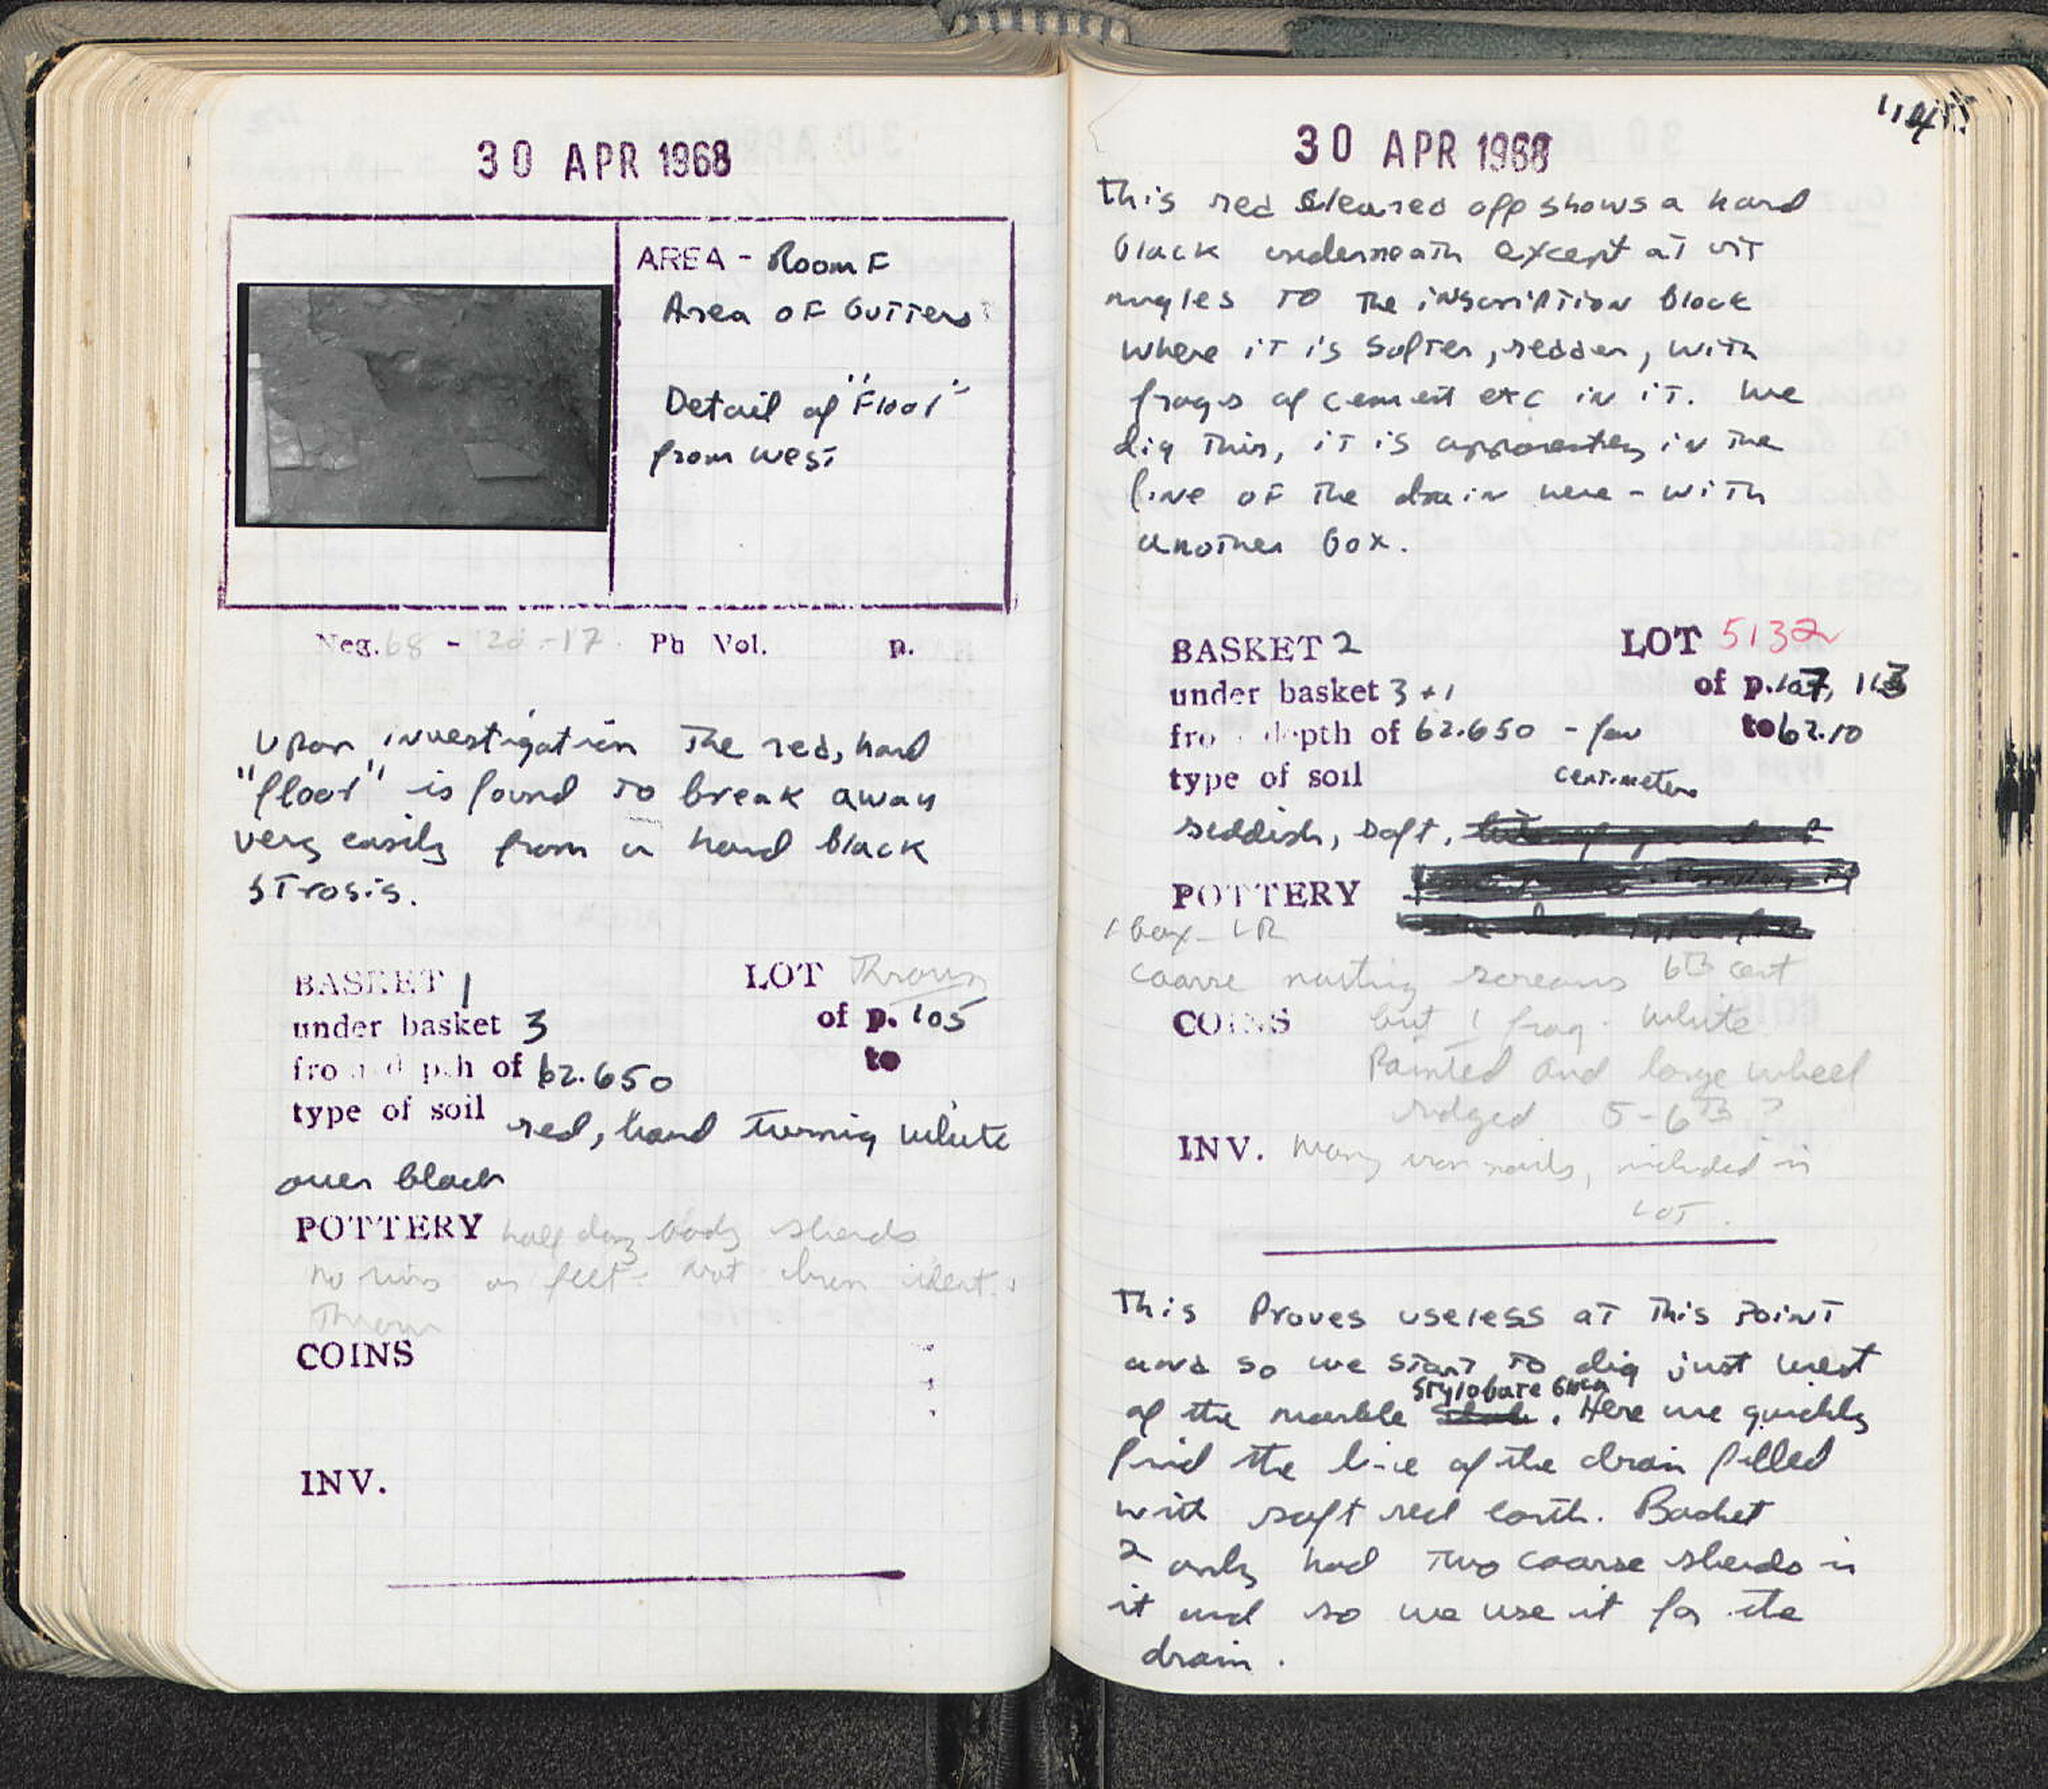 30 APR 1968
AREA - Room F
Area of Gutters
Detail of "Floor"
from west
Neg. 68 - 20 - 17 Ph Vol. p.
Upon investigation the red, hard
"floor" is found to break away
very easily from a hard black
strosis.
BASKET 1 LOT Thrown
under basket 3 of p. 105
from depth of 62.650 to
type of soil red, hard turning white
over black
POTTERY half doz body sherds
no rims or feet. not even ident.
Thrown
COINS
INV.
30 APR 1968
This red cleared off shows a hard
black underneath except at rit
angles to the inscription block
where it is softer, redder, with
frags of cement etc in it. We
dig this, it is apparently in the
line of the drain here - with
another box.
BASKET 2 LOT 5132
under basket 3 + 1 of p. 107, 113
from depth of 62.650 - few to 62.10
type of soil centimeters
reddish, soft,
POTTERY
1 box - LR
coarse nasting 6th cent
COINS but 1 frag. white
Painted and large wheel
ridged 5-6th ?
INV. Many iron nails, included in
LOT.
This proves useless at this point
and so we start to dig just west
of the marble stylobate block. Here we quickly
find the line of the drain filled
with soft red earth. Basket
2 only had two coarse sherds in
it and so we use it for the
drain.